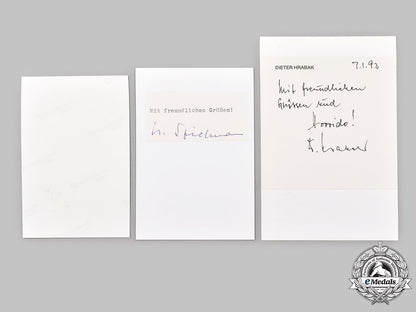 Mit freundlichen Grüßen!
DIETER HRABAK
7.1.93
Mit freundlichen
Grüssen und
Horrido!
eMedals